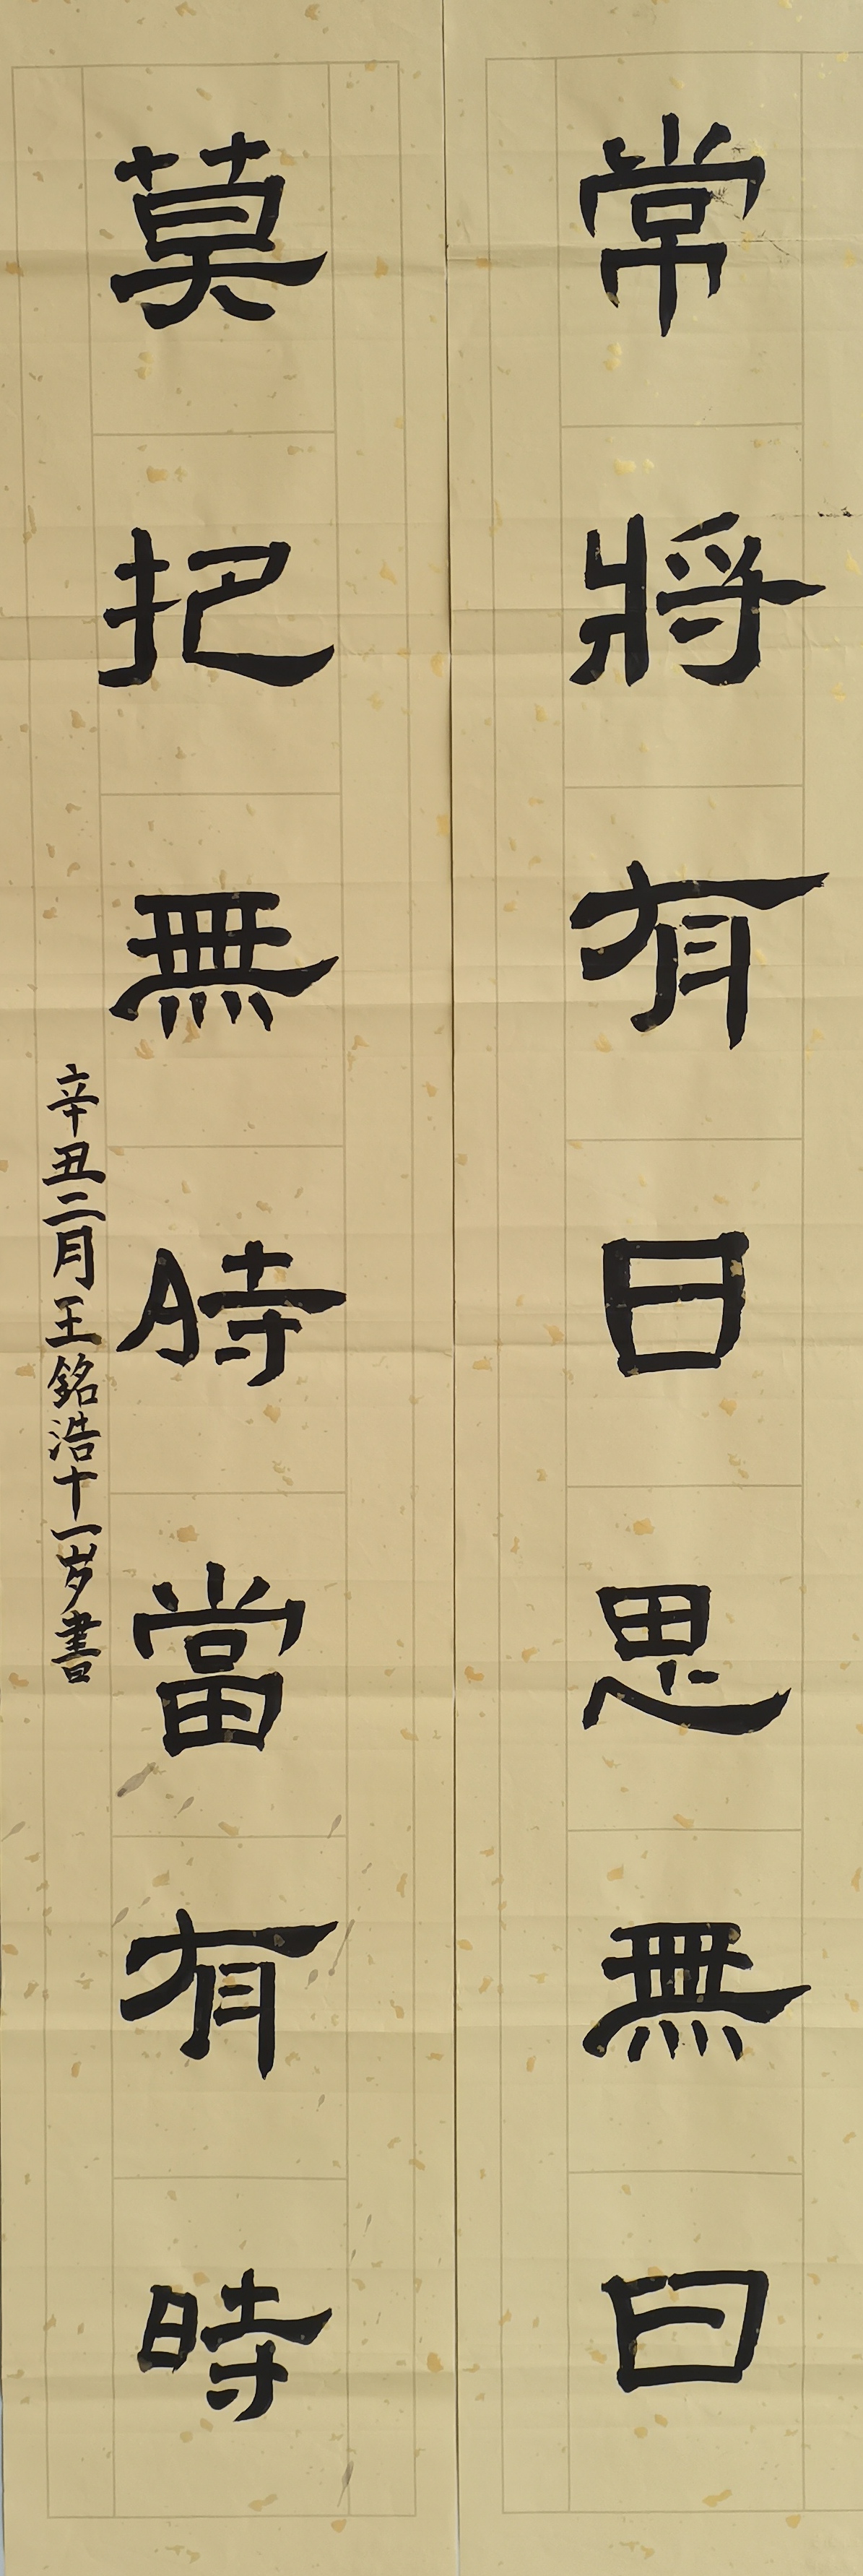 常將有日思無日
莫把無時當有時
辛丑二月王銘浩十一岁書